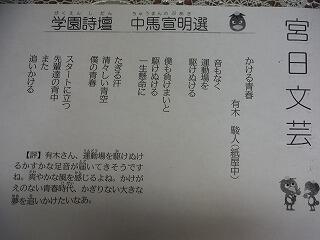 宮日文芸
学園詩壇 中馬宣明選
がくえんしだん ちゅうまんのぶあき
かける青春
有木 駿人(紙屋中)
音もなく
運動場を
駆けぬける
僕も負けまいと
駆けぬける
一生懸命に
たぎる汗
清々しい青空
僕の青春
スタートに立つ
また
先輩達の背中
追いかける
【評】有木さん、運動場を駆けぬけ
るかすかな足音が届いてきそうです
ね。爽やかな風を感じるよね。かけが
えのない青春時代、かぎりない大きな
夢を追いかけたいなあ。